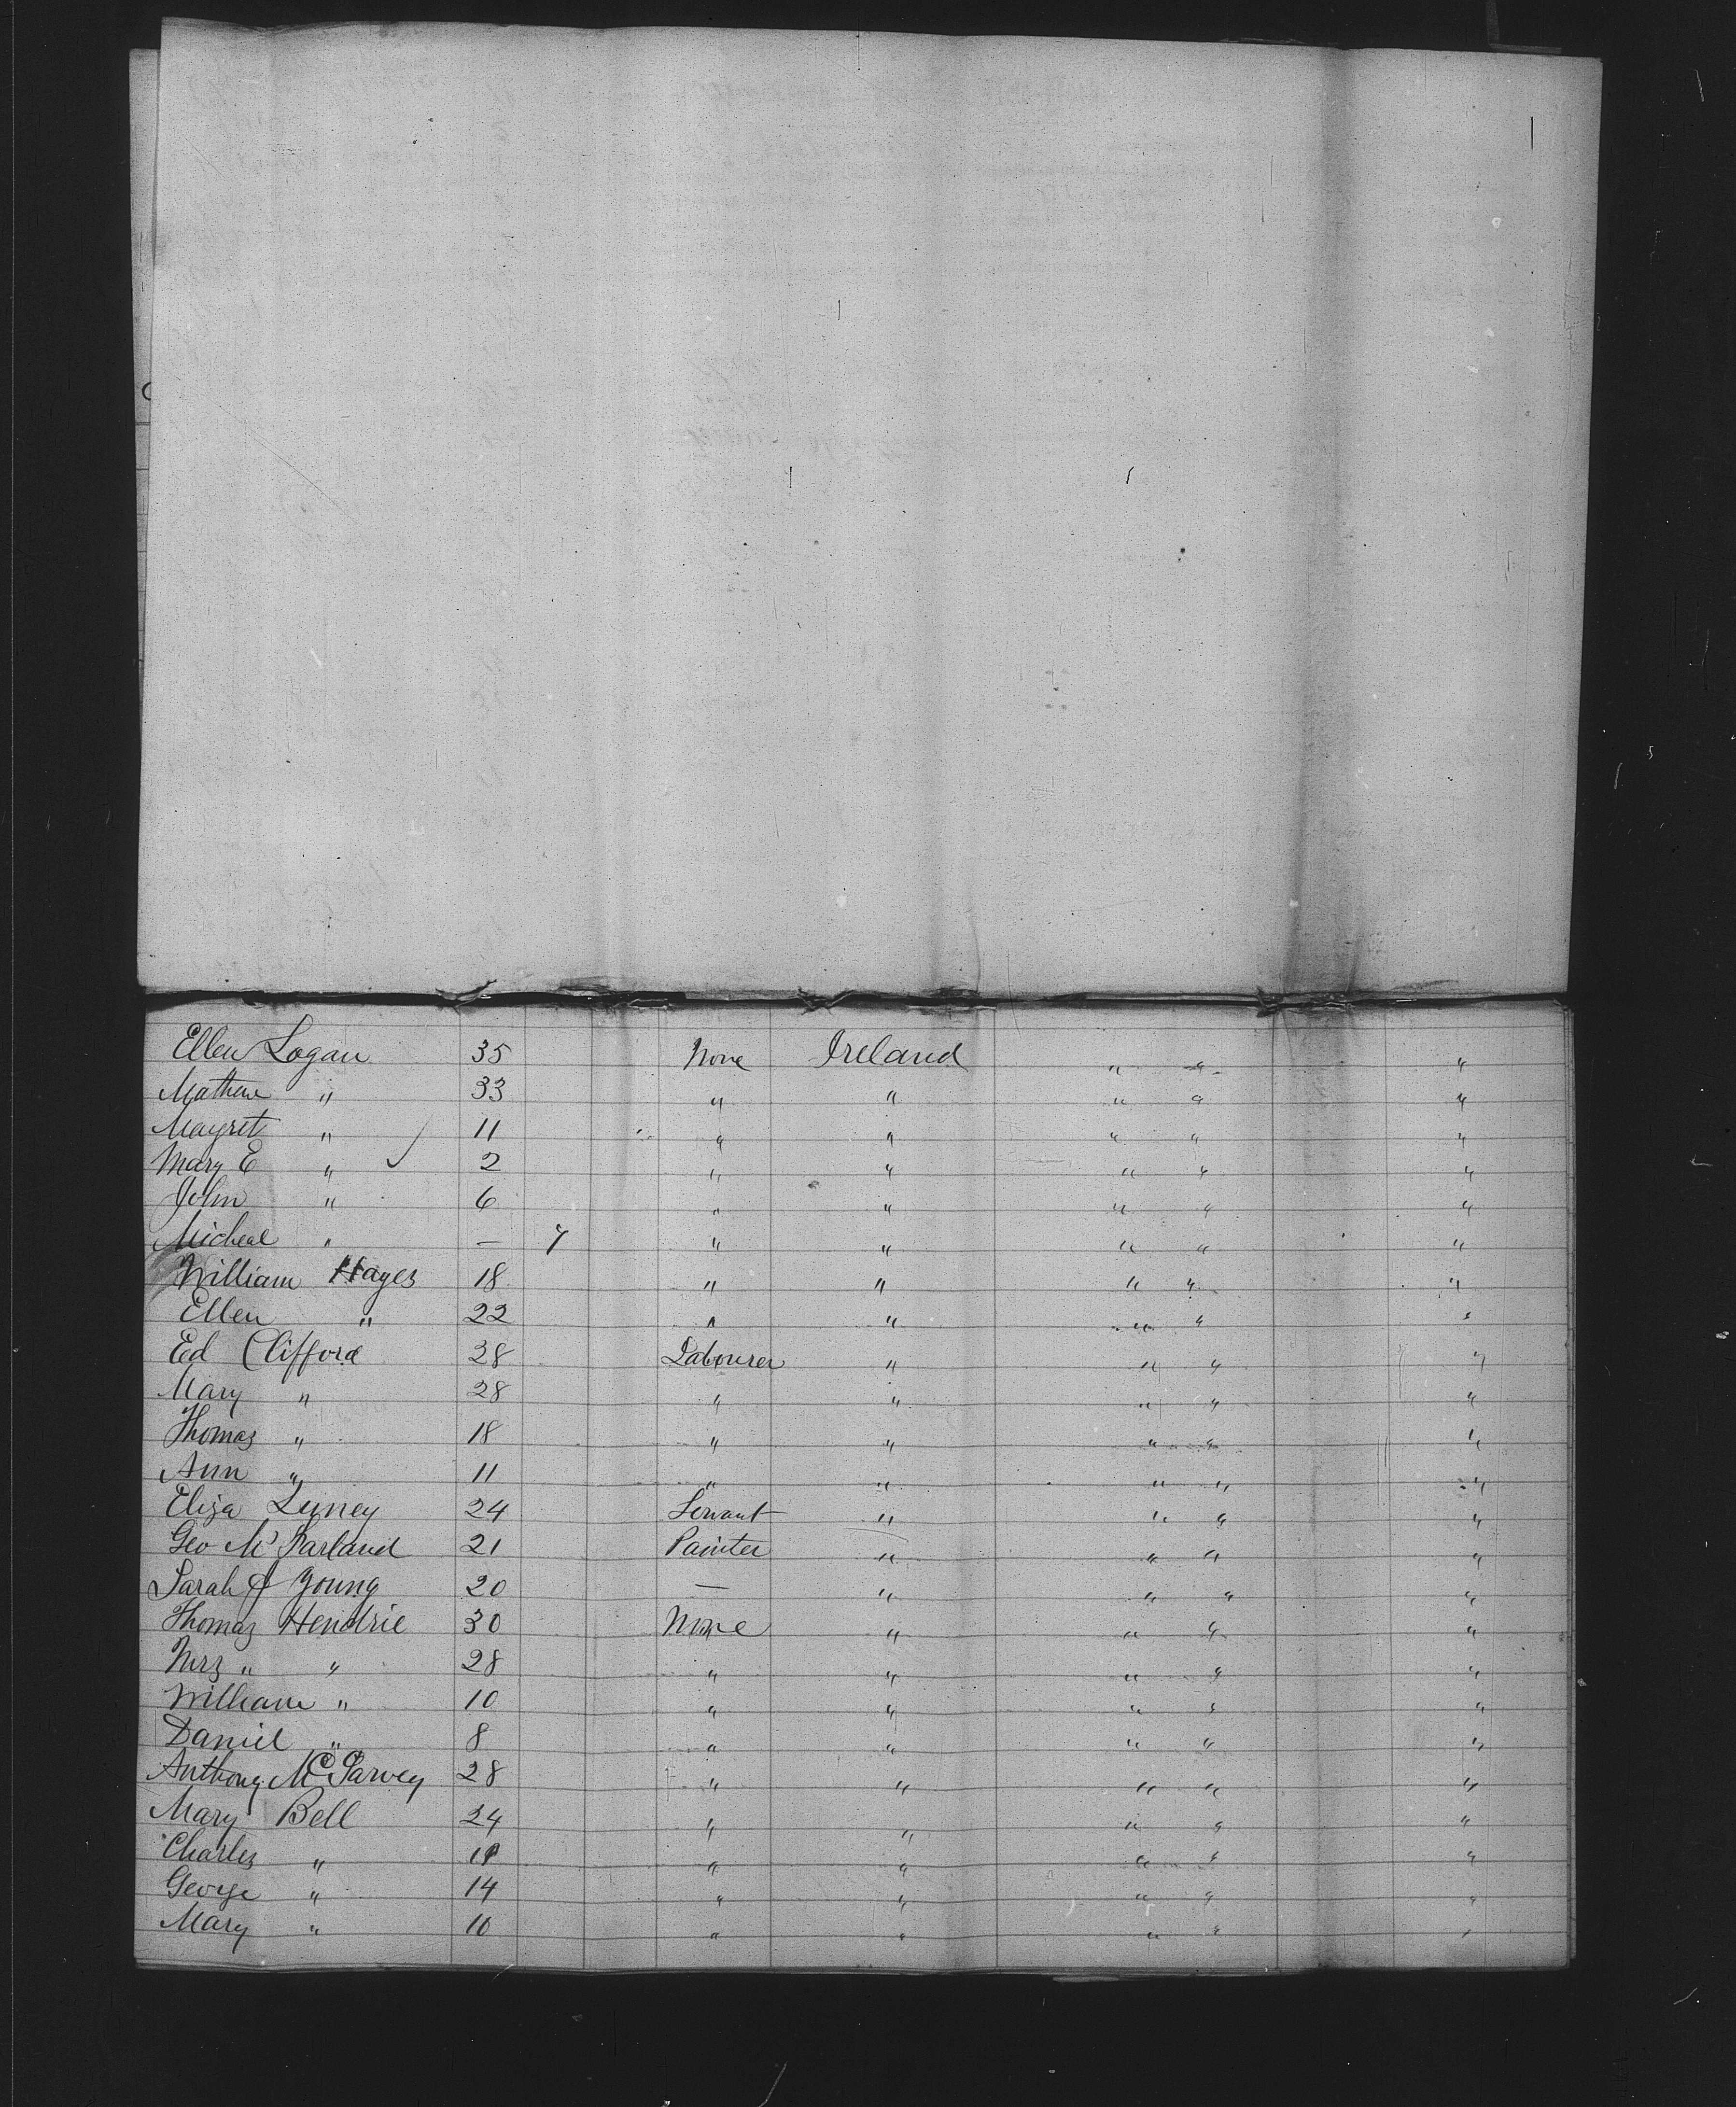 Ellen Logan 35 None Ireland " " "
Mathew " 33 " " " " "
Magret " 11 " " " " "
Mary E " 2 " " " " "
John " 6 " " " " "
Micheal " — 7 " " " " "
William Hayes 18 " " " " "
Ellen " 22 " " " " "
Ed Clifford 28 Labourer " " " "
Mary " 28 " " " " "
Thomas " 18 " " " " "
Ann " 11 " " " " "
Eliza 24 Servant " " " "
Geo Mc Farland 21 Painter " " " "
Sarah J Young 20 — " " " "
Thomas Hendrie 30 None " " " "
Mrs " " 28 " " " " "
William " 10 " " " " "
Daniel " 8 " " " " "
Anthony 28 " " " " "
Mary Bell 24 " " " " "
Charles " " " " " "
George " 14 " " " " "
Mary " 10 " " " " "